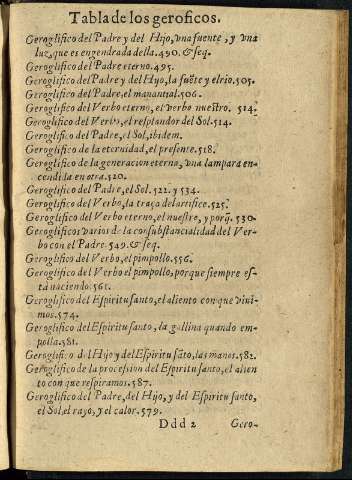 Tabla de los geroficos.
Geroglifico del Padre y del Hijo, vna fuente, y vna
luz, que es engendrada della. 490. & seq.
Geroglifico del Padre eterno. 495.
Geroglifico del Padre y del Hijo, la fuẽte y el rio. 505.
Geroglifico del Padre, el manantial. 506.
Geroglifico del Verbo eterno, el verbo nuestro. 514.
Geroglifico del Verbo, el resplandor del Sol. 514.
Geroglifico del Padre, el Sol, ibidem.
Geroglifico de la eternidad, el presente. 518.
Geroglifico de la generacion eterna, vna lampara en-
cendida en otra. 520.
Geroglifico del Padre, el Sol. 522. y 534.
Geroglifico del Verbo, la traça del artifice. 525.
Geroglifico del Verbo eterno, el nuestro, y porq̃. 530.
Geroglificos varios de la consubstancialidad del Ver-
bo con el Padre. 549. & seq.
Geroglifico del Verbo, el pimpollo. 556.
Geroglifico del Verbo el pimpollo, porque siempre es-
tà naciendo. 561.
Geroglifico del Espiritu santo, el aliento con que viui-
mos. 574.
Geroglifico del Espiritu santo, la gallina quando em-
polla. 581.
Geroglifico del Hijo y del Espiritu sãto, las manos. 582.
Geroglifico de la procession del Espiritu santo, el alien
to con que respiramos. 587.
Geroglifico del Padre, del Hijo, y del Espiritu santo,
el Sol, el rayo, y el calor. 579.
Ddd 2 Gero-